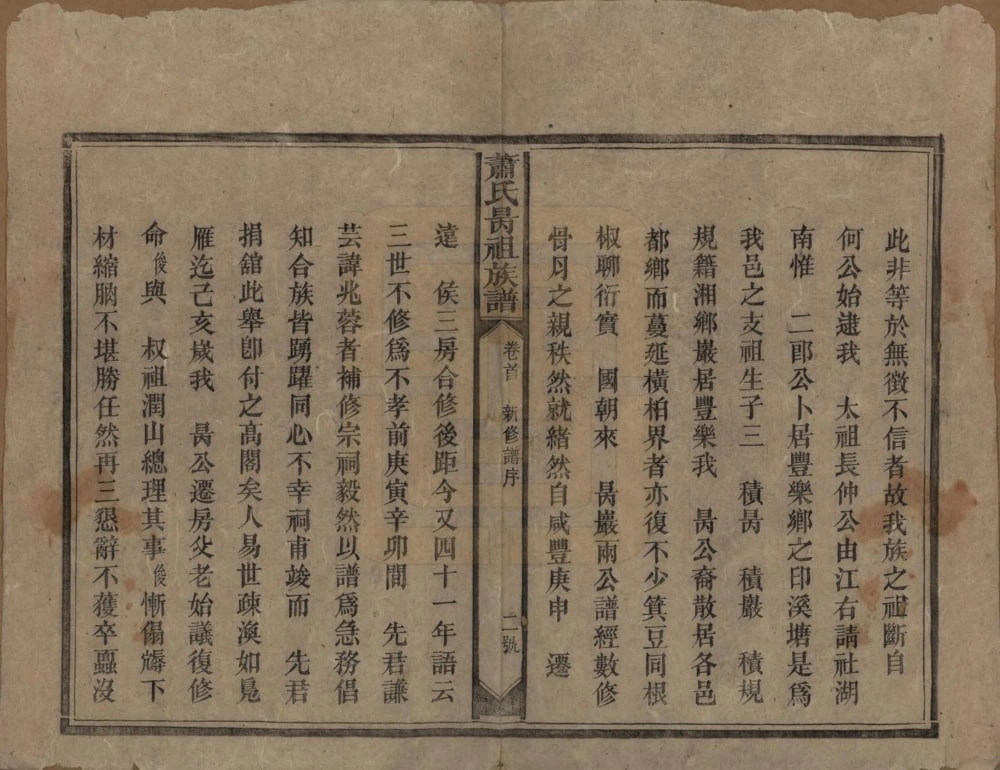 此非等於無徵不信者故我族之祖斷自
何公始逮我　太祖長仲公由江右請社湖
南惟　二郎公卜居豐樂鄉之印溪塘是爲
我邑之支祖生子三　積昺　積巖　積規
規籍湘鄉巖居豐樂我　昺公裔散居各邑
都鄉而蔓延橫柏界者亦復不少箕豆同根
椒聊衍實　國朝來　昺巖兩公譜經數修
骨月之親秩然就緒然自咸豐庚申　遷
蕭氏昺祖族譜
卷首　新修譜序
二號
遠　侯三房合修後距今又四十一年語云
三世不修爲不孝前庚寅辛卯間　先君謙
芸諱兆蓉者補修宗祠毅然以譜爲急務倡
知合族皆踴躍同心不幸祠甫竣而　先君
捐舘此舉卽付之高閣矣人易世疎渙如鳧
雁迄己亥歲我　昺公遷房父老始議復修
命俊與　叔祖潤山總理其事俊慚傷牗下
材縮腦不堪勝任然再三懇辭不獲卒蠠沒